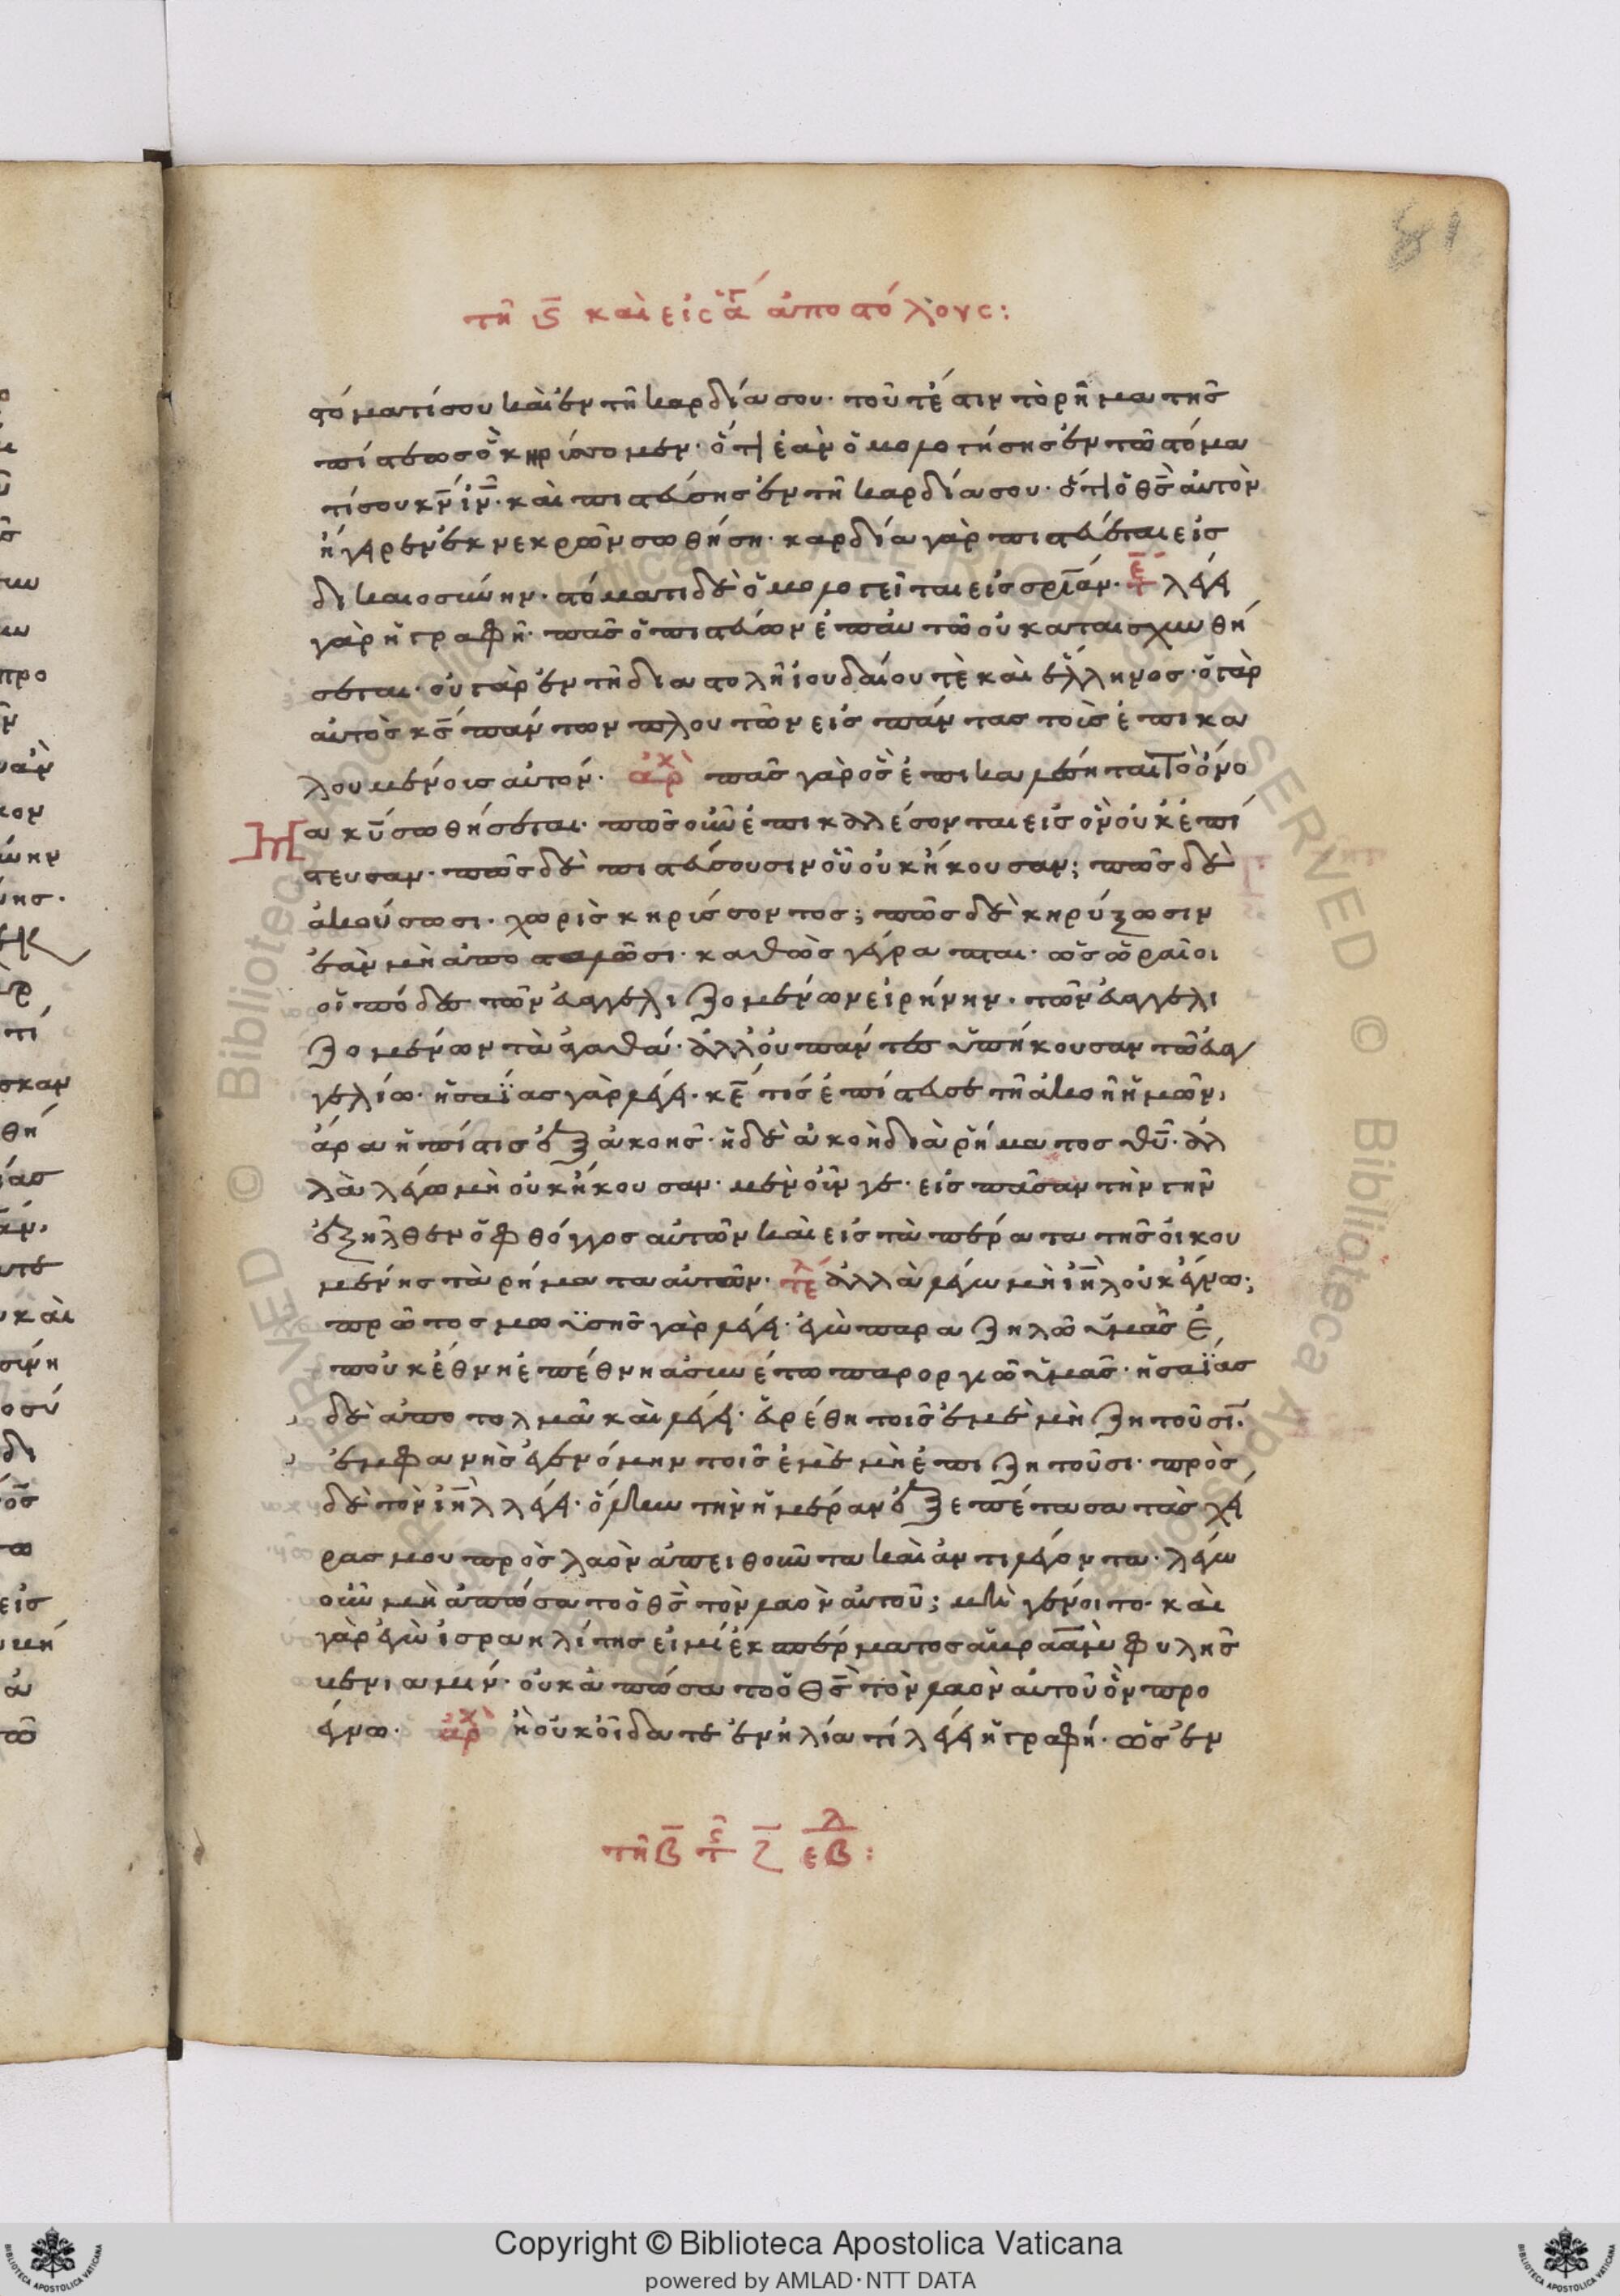 81
τῆ ς̅ καὶ εἰς ἁγ ἀποστόλους:
στόματί σου καὶ ἐν τῆ καρδία σου· τοῦτέστιν τὸ ρῆμα τῆς
πίστεως ὃ κηρύσσομεν· ὅτι ἐὰν ὁμολογήσης ἐν τῶ στόμα
τί σου κ̅ν̅ ι̅ν̅· καὶ πιστεύσης ἐν τῆ καρδία σου· ὅτι ὁ θ̅ς̅ αὐτὸν
ἤγειρεν ἐκ νεκρῶν σωθήση· καρδία γὰρ πιστεύεται εἰς
δικαιοσύνην· στόματι δὲ ὁμολογεῖται εἰς σρ̅ίαν· τε λέγει
γὰρ ἡ γραφῆ· πᾶς ὁ πιστεύων ἐπ' αὐτῶ οὐ καταισχυνθή
σεται· οὐ γάρ ἐν τῆ διαστολῆ ἰουδαίου τὲ καὶ ἕλληνος· ὁ γὰρ
αὐτὸς κ̅ς̅ πάντων πλουτῶν εἰς πάντας τοὺς ἐπικα
λουμένοις αὐτόν· ἀρχ πᾶς γὰρ ὃς ἐπικαλέσηται τὸ ὄνο
α κ̅υ̅ σωθήσεται· πῶς οὖν ἐπικαλλέσονται εἰς ὃν οὐκ ἐπί
στευσαν· πῶς δὲ πιστεύσουσιν οὗ οὐκ ἤκουσαν; πῶς δὲ
ἀκούσωσι· χωρὶς κηρύσσοντος; πῶς δὲ κηρύξωσιν
ἐὰν μὴ ἀποσταλῶσι· καθὼς γέγραπται· ὡς ὡραῖοι
οἱ πόδες τῶν εὐαγγελιζομένων εἰρήνην· τῶν εὐαγγελι
ζομένων τὰ ἀγαθά· ἀλλ' οὐ πάντες ὑπήκουσαν τῶ εὐαγ
γελίω· ἡσαΐας γὰρ λέγει· κ̅ε̅ τίς ἐπίστευσε τῆ ἀκοῆ ἡμῶν,
ἄρα ἡ πίστις ἐξ ἀκοῆς· ἡ δὲ ἀκοὴ διὰ ρήματος θ̅υ̅· ἀλ
λὰ λέγω μὴ οὐκ ἤκουσαν· μενοῦν γε· εἰς πᾶσαν τὴν γῆν
ἐξῆλθεν ὁ φθόγγος αὐτῶν καὶ εἰς τὰ πέρατα τῆς οἰκου
μένης τὰ ρήματα αὐτῶν· τελ ἀλλὰ λέγω μὴ ι̅η̅λ οὐκ ἔγνω;
πρῶτος μωϋσῆς γὰρ λέγει· ἐγὼ παραζηλῶ ὑμᾶς ἐ
π' οὐκ ἔθνη ἐπ' ἔθνη ἀσυνέτω παροργιῶ ὑμᾶς· ἡσαΐας
δὲ ἀποτολμᾶ καὶ λέγει· εὑρέθη τοῖς ἐμὲ μὴ ζητοῦσι·
ἐμφανὴς ἐγενόμην τοῖς ἐμὲ μὴ ἐπιζητοῦσι· πρὸς
δὲ τὸν ι̅η̅λ λέγει· ὅλην τὴν ἡμέραν ἐξεπέτασα τὰς χεῖ
ρας μου πρὸς λαὸν ἀπειθοῦντα καὶ ἀντιλέγοντα· λέγω
οὖν μὴ ἀπώσατο ὁ θ̅ς̅ τὸν λαὸν αὐτοῦ; μὴ γένοιτο· καὶ
γὰρ ἐγὼ ἰσραηλίτης εἰμί ἐκ σπέρματος ἀβραὰμ φυλῆς
βενιαμίν· οὐκ ἀπώσατο ὁ θ̅ς̅ τὸν λαὸν αὐτοῦ ὃν προ
έγνω· ἀρχ ἢ οὐκ οἴδατε ἐν ἠλία τί λέγει ἡ γραφή· ὡς ἐν
τῆ β̅ τῆς ζ̅ εβδ: